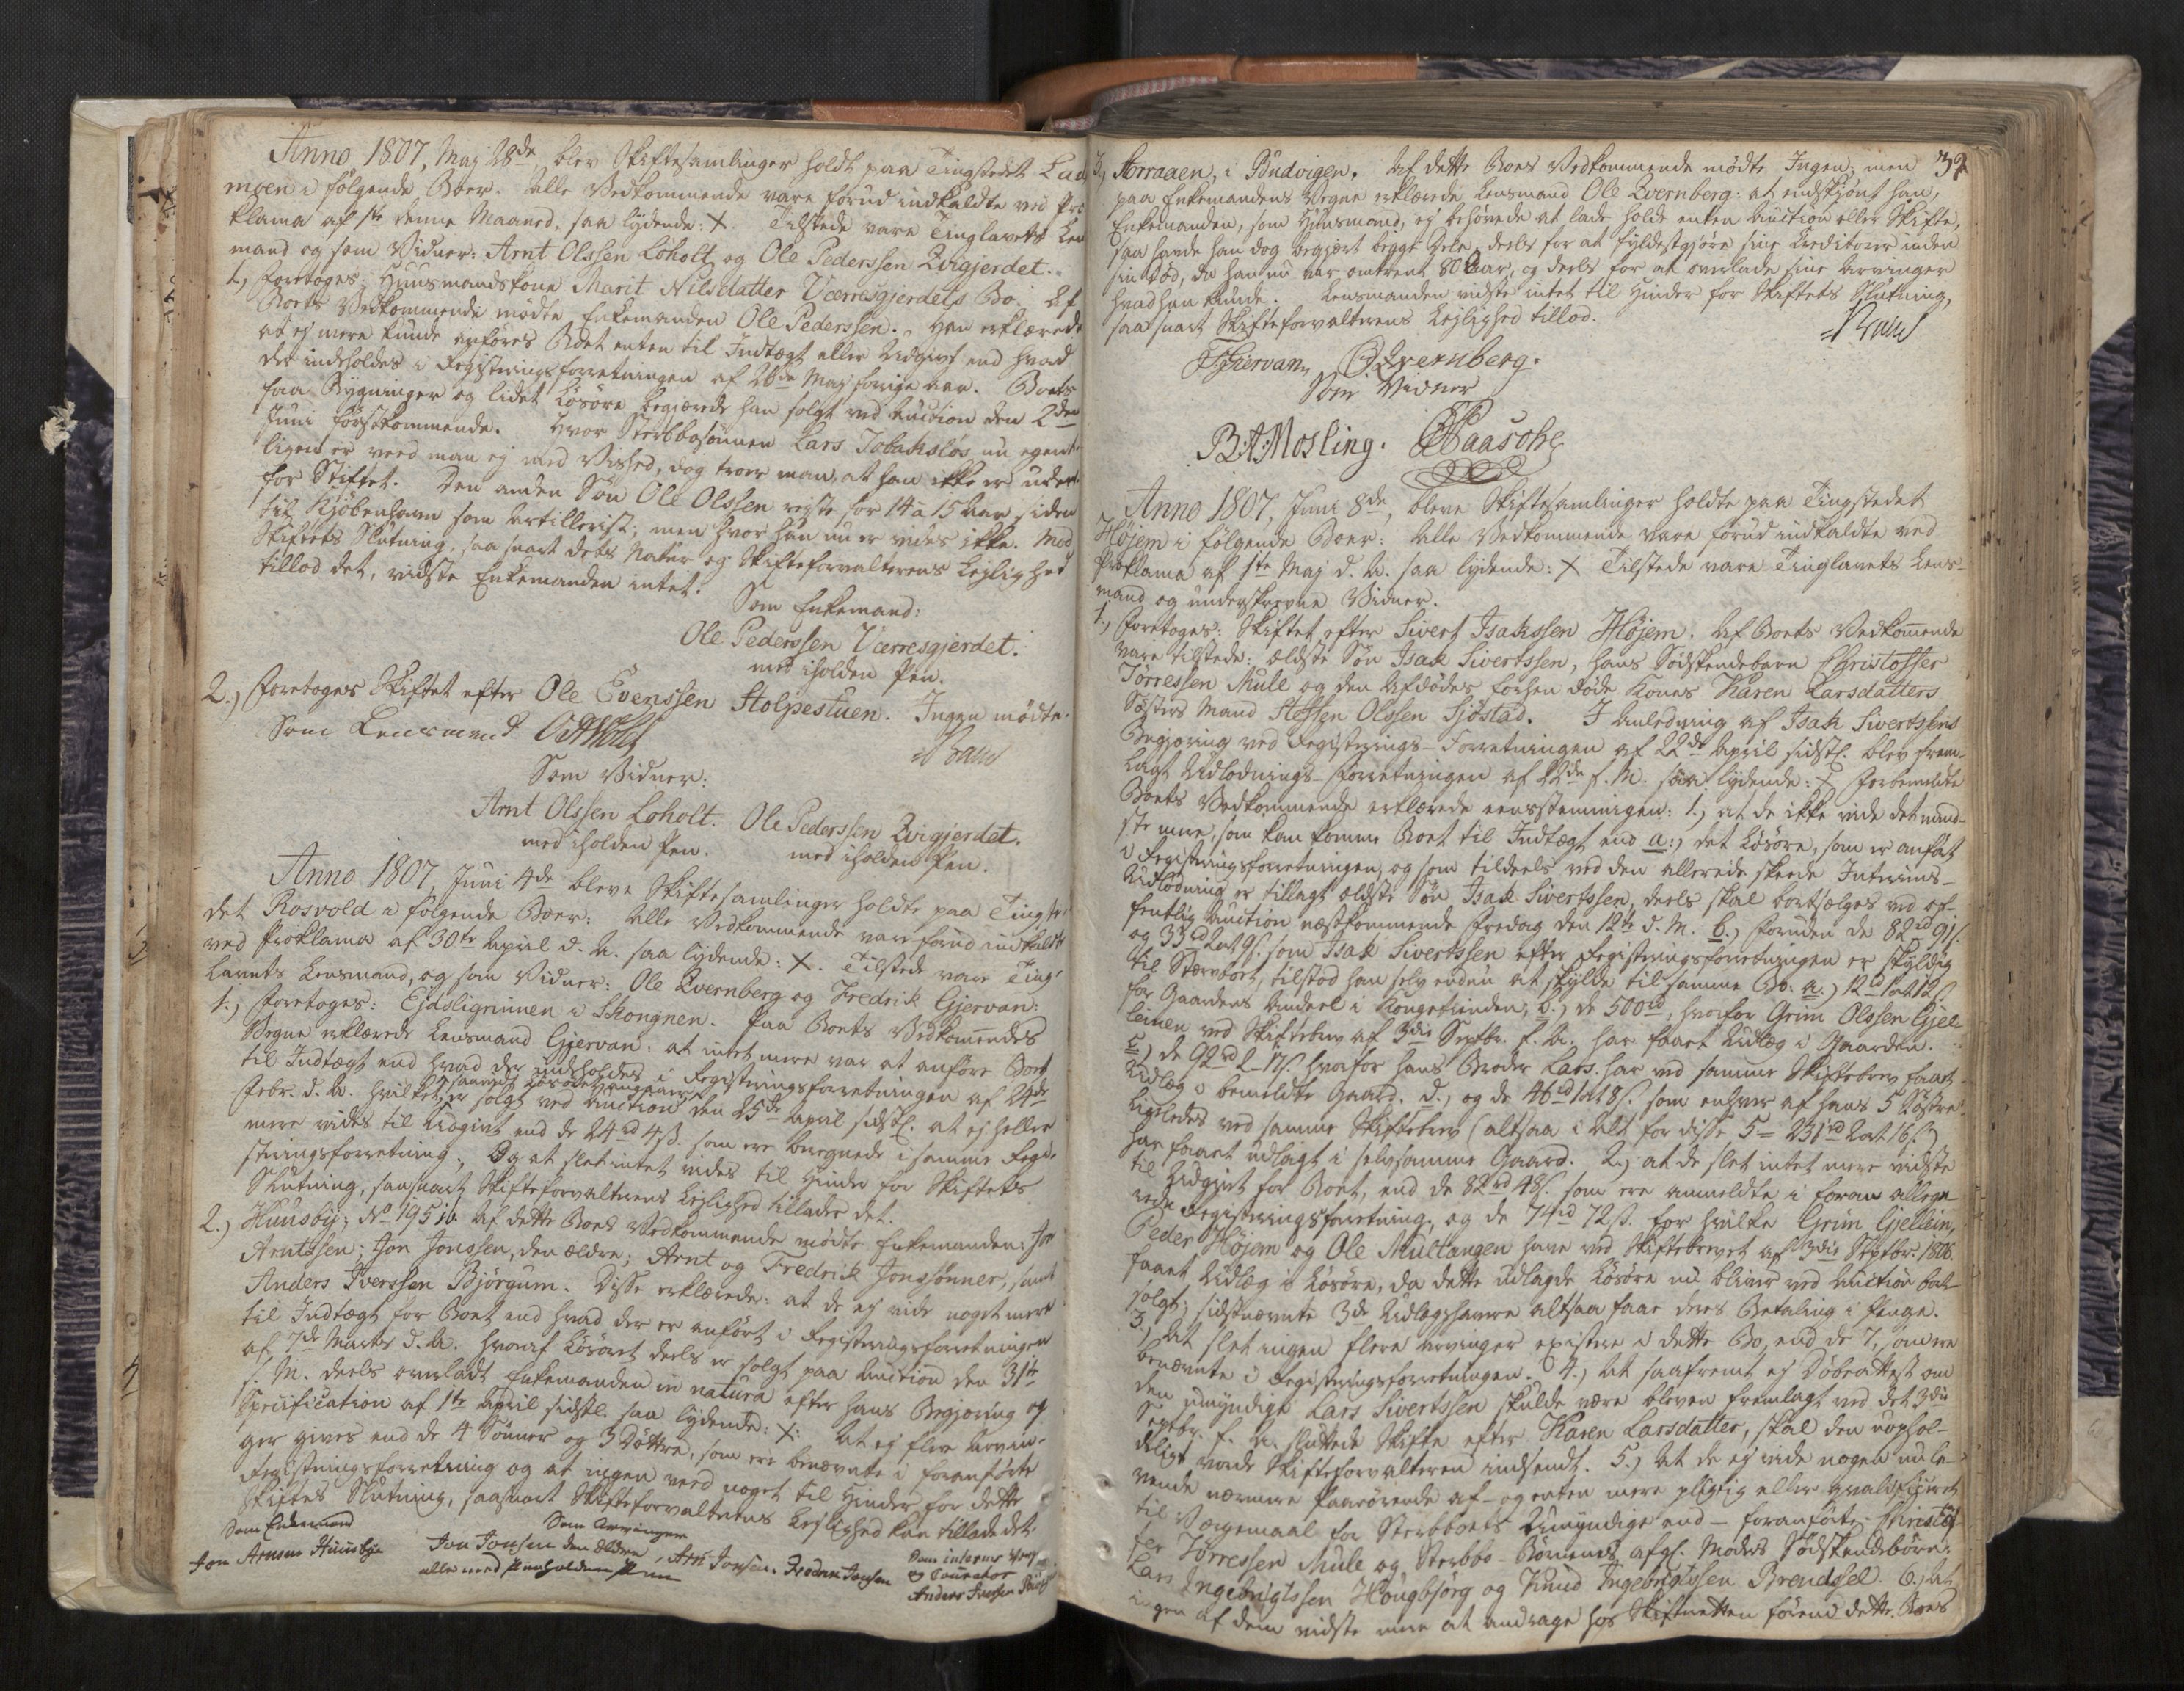 Anno 1807, Maj 28de, blev Skiftesamlinger holdt paa Tingstedet
moen i følgende Boer. Alle Vedkommende vare forud indkaldte ved Pro
klama af 1ste denne Maaned, saa lydende: X. Tilstede vare Tinglavets Len
mand og som Vidner: Arnt Olssen Loholt og Ole Pederssen Qvigjerdet.
1.) Foretoges: Huusmandskone Marit Nilsdatter Værresgjerdets Bo. Af
Boets Vedkommende mødte Enkemanden Ole Pederssen. Han erklærede
at ej mere kunde anføres Boet enten til Indtægt eller Udgivt end hvad
der indeholdes i Registreringsforretningen af 28de Maj forrige Aar. Boets
faa Bygninger og lidet Løsøre begjærede han solgt ved Auction den 2den
Juni førstkommende. Hvor Sterbbosønnen Lars nu egent-
ligen er veed man ej med Vished, dog troer man, at han ikke er uden
for Stiftet. Den anden Søn Ole Olssen rejste for 14 a 15 Aar siden
til Kjøbenhavn som Artillerist; men hvor han nu er vides ikke. Mod
Skiftets Slutning, saa snart dets Natur og Skifteforvalterens Lejlighed
tillod det, vidste Enkemanden intet.
Som Enkemand:
Ole Pederssen Værresgjerdet.
med iholden Pen.
2.) Foretoges Skiftet efter Ole Evenssen Stolpestuen. Ingen mødte.
Som Lensmand
Som Vidner:
Arnt Olssen Loholt. Ole Pederssen Qvigjerdet.
med iholden Pen. med iholden Pen.
Anno 1807, Juni 4de bleve Skiftesamlinger holdte paa Tingste-
det Rosvold i følgende Boer: Alle Vedkommende vare forud indkaldte
ved Proklama af 30te April d. A. saa lydende: X. Tilstede vare Ting-
lavets Lensmand, og som Vidner: Ole Qvernberg og Fredrik Gjervan:
1.) Foretoges: Ejdsligrunnen i Skongnen. Paa Boets Vedkommendes
Vegne erklærede Lensmand Gjervan: at intet mere var at anføre Boet
til Indtægt end hvad der indholdes i Registreringsforretningen af 24de
Febr. d. A. hvilket, saavidt Løsøret angaaer, er solgt ved Auction den 25de April sidstl. at ej heller
mere vides til Udgivt end de 24 rd 4 ß. som ere beregnede i samme Regi-
streringsforretning. Og at slet intet vides til Hinder for Skiftets
Slutning, saasnart Skifteforvalterens Lejlighed tillader det.
2.) Huusbÿ, No 195 Af dette Boes Vedkommende mødte Enkemanden: Jon
Arntssen; Jon Jonssen, den ældre; Arnt og Fredrik Jonssønner, samt
Anders Iverssen Bjørgum. Disse erklærede: at de ej vide noget mere
til Indtægt for Boet end hvad der er anført i Registreringsforretningen
af 7de Marts d. A. hvoraf Løsøret deels er solgt paa Auction den 31te
s. M. deels overladt Enkemanden in natura efter hans Begjæring og
Specification af 1te April sidstl. saa lydende: X: At ej flere Arvin-
ger gives end de 4 Sønner og 3 Døttre, som ere benævnte i foranførte
Registreringsforretning og at ingen veed noget til Hinder for dette
Skiftes Slutning, saasnart Skifteforvalterens Lejlighed kan tillade det.
Som Enkemand Som Arvinger
Jon Arnsen Huusbye Jon Jonsen den ældre, Arn Jonsen. Fredrik Jonsen
alle med paaholden Pen
Som interims
og Curator
Anders Iversen
32
3.) Aorraaen, i Budvigen. Af dette Boes Vedkommende mødte Ingen; men
paa Enkemandens Vegne erklærede Lensmand Ole Qvernberg: at endskjønt han,
Enkemanden, som Huusmand, ej behøvede at lade holde enten Auction eller Skifte,
saa havde han dog begjært begge Dele, deels for at fyldestgjøre sine Kreditorer inden
sin Død, da han nu var omtrent 80 Aar, og deels for at overlade sine Arvinger
hvad han kunde. Lensmanden vidste intet til Hinder for Skiftets Slutning,
saa snart Skifteforvalterens Lejlighed tillod.
F. Giervan, O. Qvernberg.
Som Vidner
B. A. Mosling. Paasche
Anno 1807, Juni 8de, bleve Skiftesamlinger holdte paa Tingstedet
Høјem i følgende Boer: Alle Vedkommende vare forud indkaldte ved
Proklama af 1ste Maj d. A. saa lydende: X Tilstede vare Tinglavets Lens-
mand og underskrevne Vidner.
1.) Foretoges: Skiftet efter Sivert Isakssen Høјem. Af Boets Vedkommende
vare tilstede: ældste Søn Isak Sivertssen, hans Sødskendebarn Christoffer
Tørressen Mule og den Afdødes forhen døde Kones Karen Larsdatters
Søsters Mand Steffen Olssen Sjøstad. I Anledning af Isak Sivertssens
Begjæring ved Registrerings-Forretningen af 22de April sidstl. blev frem-
lagt Udlodnings-Forretningen af 22de s. M. saa lydende: X Forbemeldte
Boets Vedkommende erklærede eensstemmigen: 1.) at de ikke vide det mind-
ste mere, som kan komme Boet til Indtægt end a:) det Løsøre, som er anført
i Registreringsforretningen, og som tildeels ved den allerede skeede Interims-
Udlodning er tillagt ældste Søn Isak Sivertssen, deels skal bortsælges ved of-
fentlig Auction næstkommende Fredag den 12te d. M. b.) Foruden de 82 rd 91 ß.
og 33 rd 2 ort 9 ß. som Isak Sivertssen efter Registreringsforretningen er skyldig
til Stervboet, tilstod han selv endnu at skylde til samme Bo: a.) 12 rd 1 ort 12 ß.
for Gaardens Andeel i Kongetienden, b.) de 500 rd, hvorfor Grim Olssen Gjel-
leinen ved Skiftebrev af 3die Septbr. f. A. har faaet Udlæg i Gaarden.
c.) de 92 rd 2 - 17 ß. hvorfor hans Broder Lars har ved samme Skiftebrev faaet
Udlæg i bemeldte Gaard. d.) og de 46 rd 1 ort 8 ß. som enhver af hans 5 Søstre
ligeledes ved samme Skiftebrev (altsaa i Alt for disse 5 = 231 rd 2 ort 16 ß.)
har faaet udlagt i selvsamme Gaard. 2.) at de slet intet mere vidste
til Udgivt for Boet, end de 82 rd 48 ß. som ere anmeldte i foran allege-
rede Registreringsforretning, og de 74 rd 72 ß. for hvilke Grim Gjellein,
Peder Høјem og Ole Multangen have ved Skiftebrevet af 3die Septbr. 1806
faaet Udlæg i Løsøre, da dette udlagde Løsøre nu bliver ved Auction bort-
solgt; sidstnævnte 3de Udlægshavere altsaa faae deres Betaling i Penge.
3.) At slet ingen flere Arvinger existere i dette Bo, end de 7, som ere
benævnte i Registreringsforretningen. 4.) At saafremt ej Døbeattest om
den umyndige Lars Sivertssen skulde være bleven fremlagt ved det 3die
Septbr. f. A. sluttede Skifte efter Karen Larsdatter, skal den uophol-
deligt vorde Skifteforvalteren indsendt. 5.) At de ej vide nogen nule-
vende nærmere Paarørende af- og enten mere pligtig eller qvalificeret
til Værgemaal for Sterbboets Umyndige end - foranførte Christof-
fer Tørressen Mule og Sterbbo-Børnenes afgl. Moders Sødskendebørn:
Lars Ingebrigtssen Hougbjørg og Knud Ingebrigtssen Brendsel. 6.) At
ingen af dem vidste mere at andrage hos Skifteretten førend dette Boes